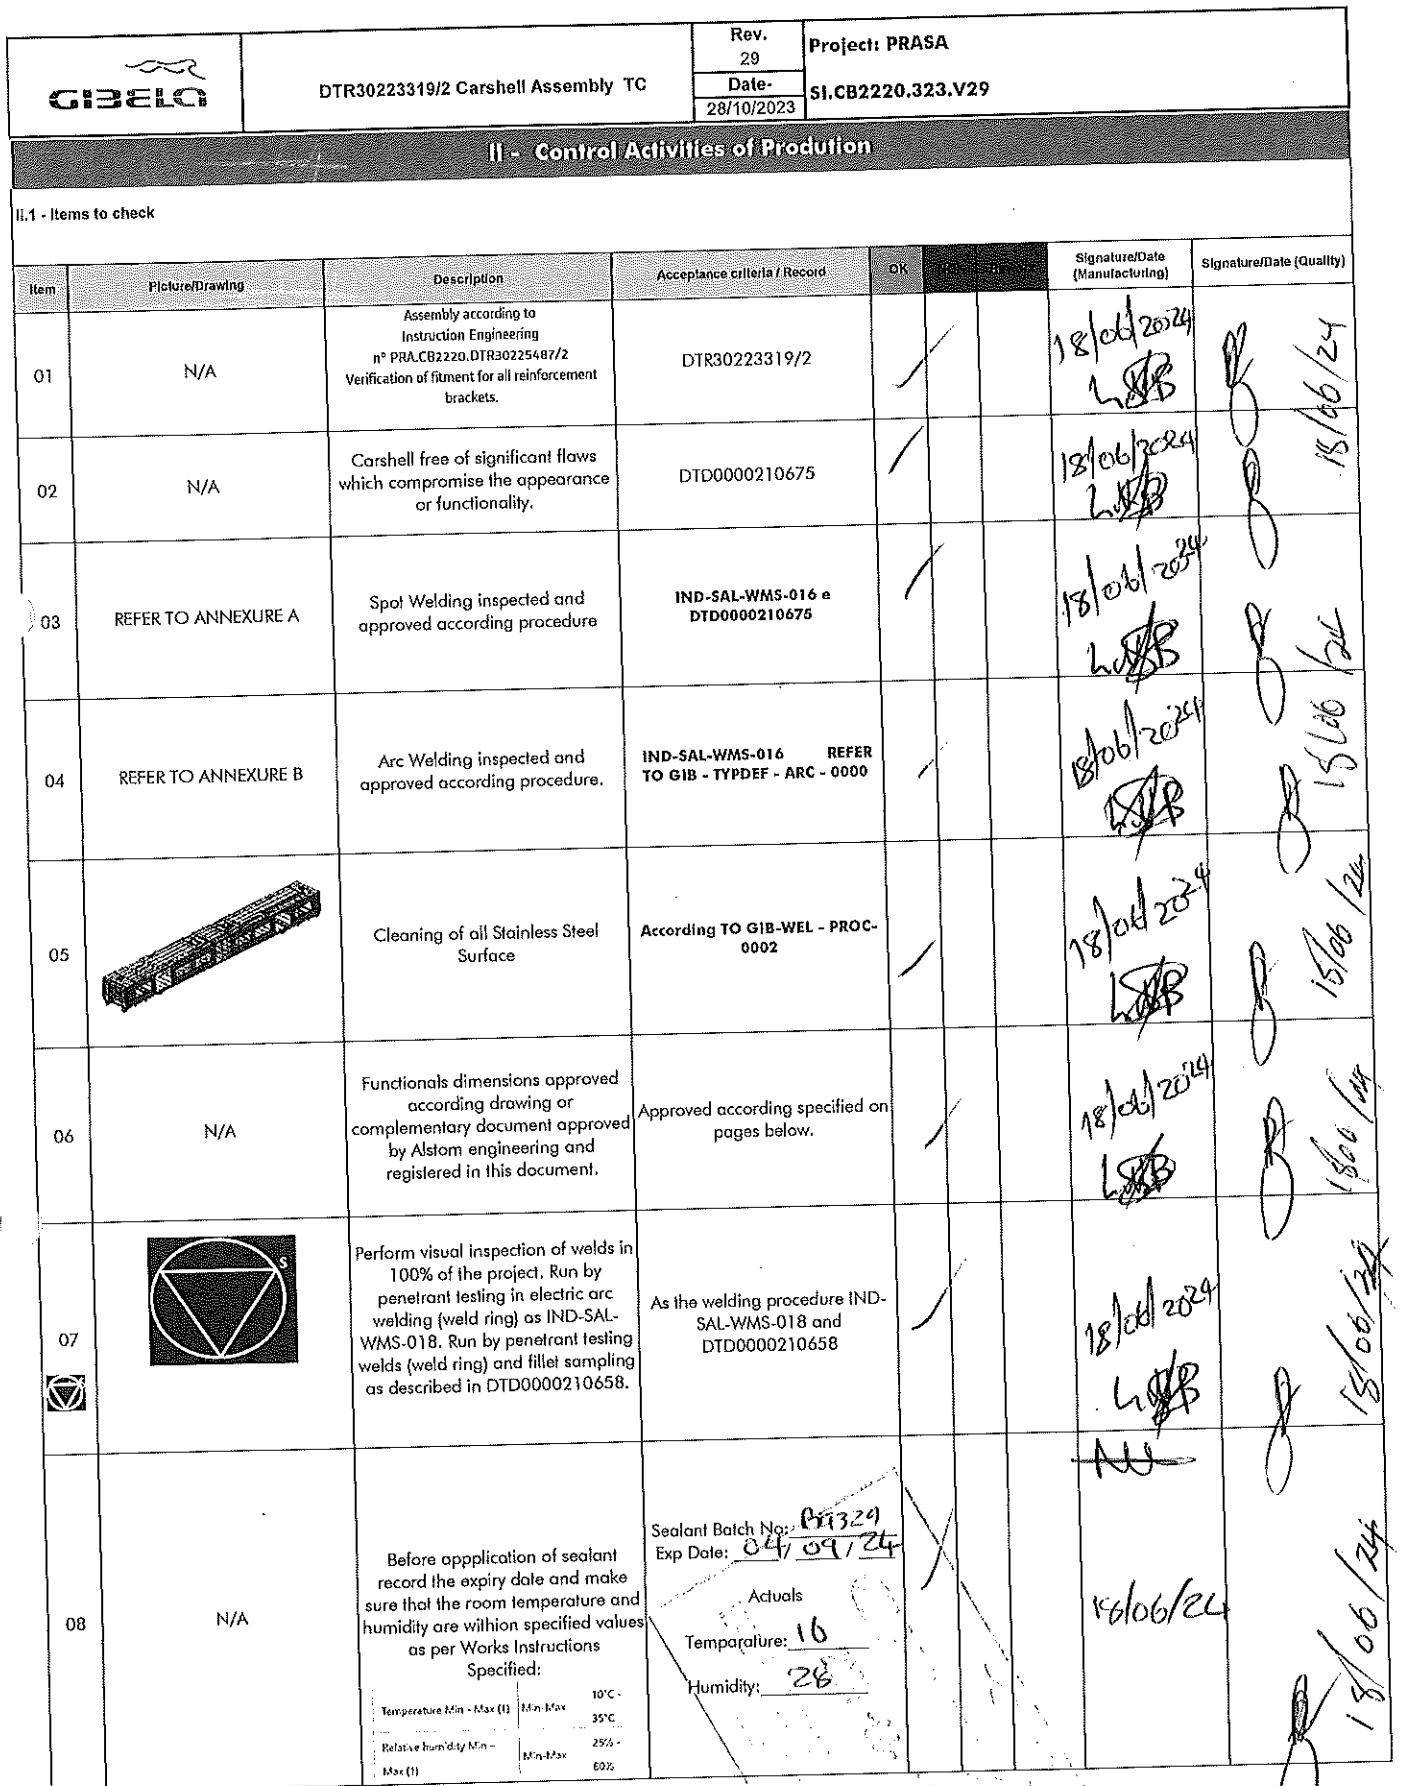 GIBELA
DTR30223319/2 Carshell Assembly TC
Rev.
29
Date-
28/10/2023
Project: PRASA
SI.CB2220.323.V29
II - Control Activities of Prodution
II.1 - Items to check
Item
Picture/Drawing
Description
Acceptance criteria / Record
OK
Signature/Date
(Manufacturing)
Signature/Date (Quality)
01
N/A
Assembly according to
Instruction Engineering
nº PRA.CB2220.DTR30225487/2
Verification of fitment for all reinforcement
brackets.
DTR30223319/2
18/06/2024
18/06/24
02
N/A
Carshell free of significant flaws
which compromise the appearance
or functionality.
DTD0000210675
18/06/2024
03
REFER TO ANNEXURE A
Spot Welding inspected and
approved according procedure
IND-SAL-WMS-016 e
DTD0000210675
18/06/2024
18/06/24
04
REFER TO ANNEXURE B
Arc Welding inspected and
approved according procedure.
IND-SAL-WMS-016 REFER
TO GIB - TYPDEF - ARC - 0000
18/06/2024
05
Cleaning of all Stainless Steel
Surface
According TO GIB-WEL - PROC-
0002
18/06/2024
18/06/24
06
N/A
Functionals dimensions approved
according drawing or
complementary document approved
by Alstom engineering and
registered in this document.
Approved according specified on
pages below.
18/06/2024
07
S
Perform visual inspection of welds in
100% of the project. Run by
penetrant testing in electric arc
welding (weld ring) as IND-SAL-
WMS-018. Run by penetrant testing
welds (weld ring) and fillet sampling
as described in DTD0000210658.
As the welding procedure IND-
SAL-WMS-018 and
DTD0000210658
18/06/2024
18/06/24
08
N/A
Before appplication of sealant
record the expiry date and make
sure that the room temperature and
humidity are withion specified values
as per Works Instructions
Specified:
Temperature Min - Max (1) Min-Max 10°C -
35°C
Relative humidity Min -
Max (1) Min-Max 25% -
60%
Sealant Batch No:
Exp Date: 04/09/24
Actuals
Temparature: 16
Humidity: 28
18/06/24
18/06/24